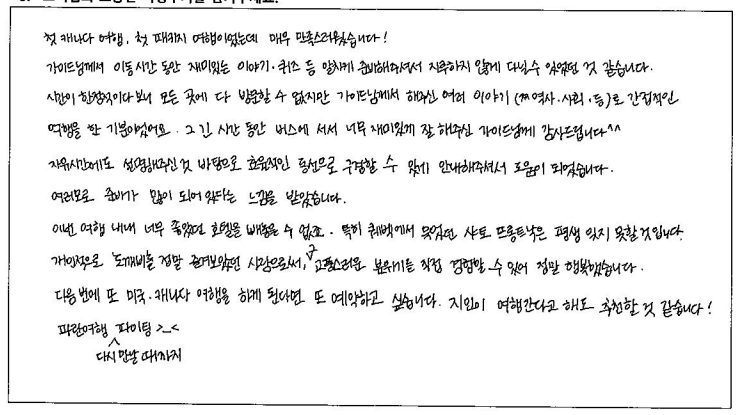 첫 캐나다 여행, 첫 패키지 여행이었는데 매우 만족스러웠습니다!
가이드님께서 이동시간 동안 재미있는 이야기·퀴즈 등 알차게 준비해주셔서 지루하지 않게 다닐 수 있었던 것 같습니다.
시간이 한정적이다보니 모든 곳에 다 방문할 수 없지만 가이드님께서 해주신 여러 이야기 (캐 역사·사회·등)로 간접적인
여행을 한 기분이었어요. 그 긴 시간 동안 버스에 서서 너무 재미있게 잘 해주신 가이드님께 감사드립니다^^
자유시간에도 설명해주신 것 바탕으로 효율적인 동선으로 구경할 수 있게 안내해주셔서 도움이 되었습니다.
여러모로 준비가 많이 되어있다는 느낌을 받았습니다.
이번 여행 내내 너무 좋았던 호텔을 빼놓을 수 없죠. 특히 퀘벡에서 묵었던 샤토 프롱트낙은 평생 잊지 못할 것입니다.
개인적으로 '도깨비'를 정말 즐겨보았던 사람으로써, 그 고풍스러운 분위기를 직접 경험할 수 있어 정말 행복했습니다.
다음번에 또 미국·캐나다 여행을 하게 된다면 또 예약하고 싶습니다. 지인이 여행간다고 해도 추천할 것 같습니다!
파란여행 파이팅 >_<
다시 만날 때까지